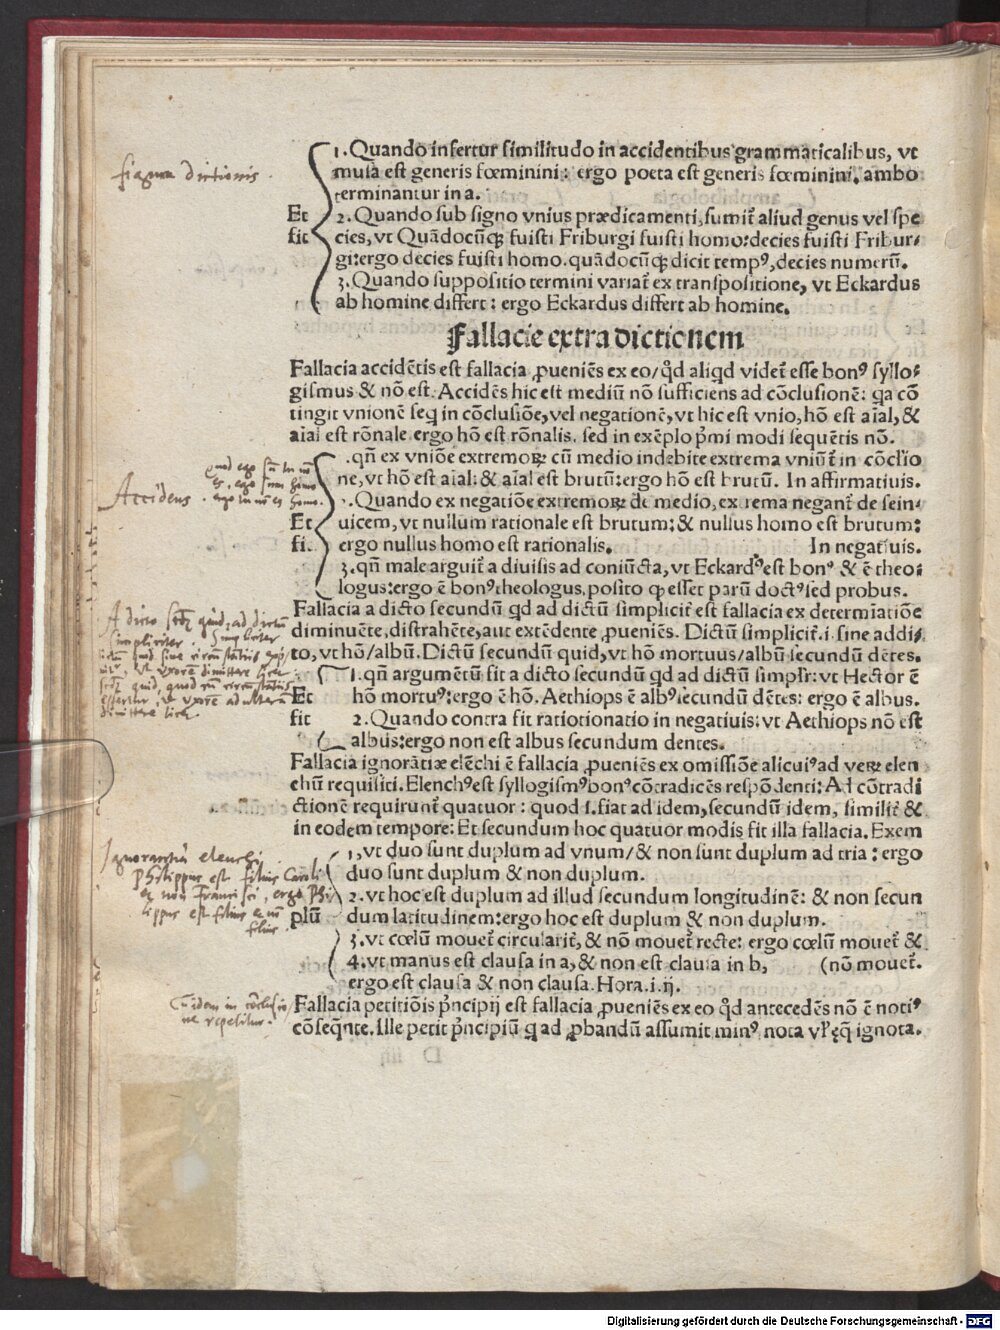 figura dictionis.
1. Quando infertur similitudo in accidentibus grammaticalibus, vt
musa est generis fœminini: ergo poeta est generis fœminini, ambo
terminantur in a.
Et 2. Quando sub signo vnius prædicamenti, sumit̃ aliud genus vel spe
fit cies, vt Quãdocũq; fuisti Friburgi fuisti homo: decies fuisti Fribur⸗
gi: ergo decies fuisti homo. quãdocũq; dicit tempꝰ, decies numerũ.
3. Quando suppositio termini variat̃ ex transpositione, vt Eckardus
ab homine differt: ergo Eckardus differt ab homine.
Fallacie extra dictionem
Fallacia accidẽtis est fallacia ꝓueniẽs ex eo/ qd̃ aliqd videt̃ esse bonꝰ syllo⸗
gismus & nõ est. Accidẽs hic est mediũ nõ sufficiens ad cõclusionẽ: qa cõ
tingit vnionẽ seq in cõclusiõe, vel negationẽ, vt hic est vnio, hõ est aĩal, &
aĩal est rõnale ergo hõ est rõnalis. sed in exẽplo pͥmi modi sequẽtis nõ.
quod ego sũ tu nõ
es, ego sum homo
ergo tu nõ es homo.
Accidens.
.qñ ex vniõe extremoꝝ cũ medio indebite extrema vniũt̃ in cõclio
ne, vt hõ est aĩal: & aĩal est brutũ: ergo hõ est brutũ. In affirmatiuis.
. Quando ex negatiõe extremoꝝ de medio, extrema negant̃ de sein⸗
Et uicem, vt nullum rationale est brutum: & nullus homo est brutum:
fi. ergo nullus homo est rationalis. In negatiuis.
3. qñ male arguit̃ a diuisis ad coniũcta, vt Eckardꝰ est bonꝰ & ẽ theo⸗
logus: ergo ẽ bonꝰ theologus, posito ꝙ esset parũ doctꝰ sed probus.
A dicto secũ quid, ad dictũ
simpliciter
Fallacia a dicto secundũ qd ad dictũ simplicit̃ est fallacia ex determĩatiõe
diminuẽte, distrahẽte, aut extẽdente ꝓueniẽs. Dictũ simplicit̃ .i. sine addi⸗
to, vt hõ/ albũ. Dictũ secundũ quid, vt hõ mortuus/ albũ secundũ dẽtes.
1. qñ argumẽtũ fit a dicto secundũ qd ad dictũ simplr̃: vt Hector ẽ
Et hõ mortuꝰ: ergo ẽ hõ. Aethiops ẽ albꝰ secundũ dẽtes: ergo ẽ albus.
fit 2. Quando contra fit ratiotinatio in negatiuis: vt Aethiops nõ est
albus: ergo non est albus secundum dentes.
Fallacia ignorãtiæ elẽchi ẽ fallacia ꝓueniẽs ex omissiõe alicuiꝰ ad veꝝ elen
chũ requisiti. Elenchꝰ est syllogismꝰ bonꝰ cõtradicẽs respõdenti: Ad cõtradi
ctionẽ requirunt̃ quatuor: quod s. fiat ad idem, secundũ idem, similit̃ &
in eodem tempore: Et secundum hoc quatuor modis fit illa fallacia. Exem
Ignorantiã elenchi
Philippus est filius Caroli
et non Francisci, ergo Phi
lippus est filius & nõ
filius.
1, vt duo sunt duplum ad vnum/ & non sunt duplum ad tria: ergo
duo sunt duplum & non duplum.
2. vt hoc est duplum ad illud secundum longitudinẽ: & non secun
plũ dum latitudinem: ergo hoc est duplum & non duplum.
3. vt cœlũ mouet̃ circularit̃, & nõ mouet̃ recte: ergo cœlũ mouet̃ &
4. vt manus est clausa in a, & non est clausa in b, (nõ mouet̃.
ergo est clausa & non clausa. Hora. i. ij.
idem in cõclusio
ne repetitur.
Fallacia petitiõis pͥncipij est fallacia ꝓueniẽs ex eo qd̃ antecedẽs nõ ẽ notiꝰ
cõseqñte. Ille petit pͥncipiũ q ad ꝓbandũ assumit minꝰ nota vl̃ ęq ignota.
Digitalisierung gefördert durch die Deutsche Forschungsgemeinschaft - DFG